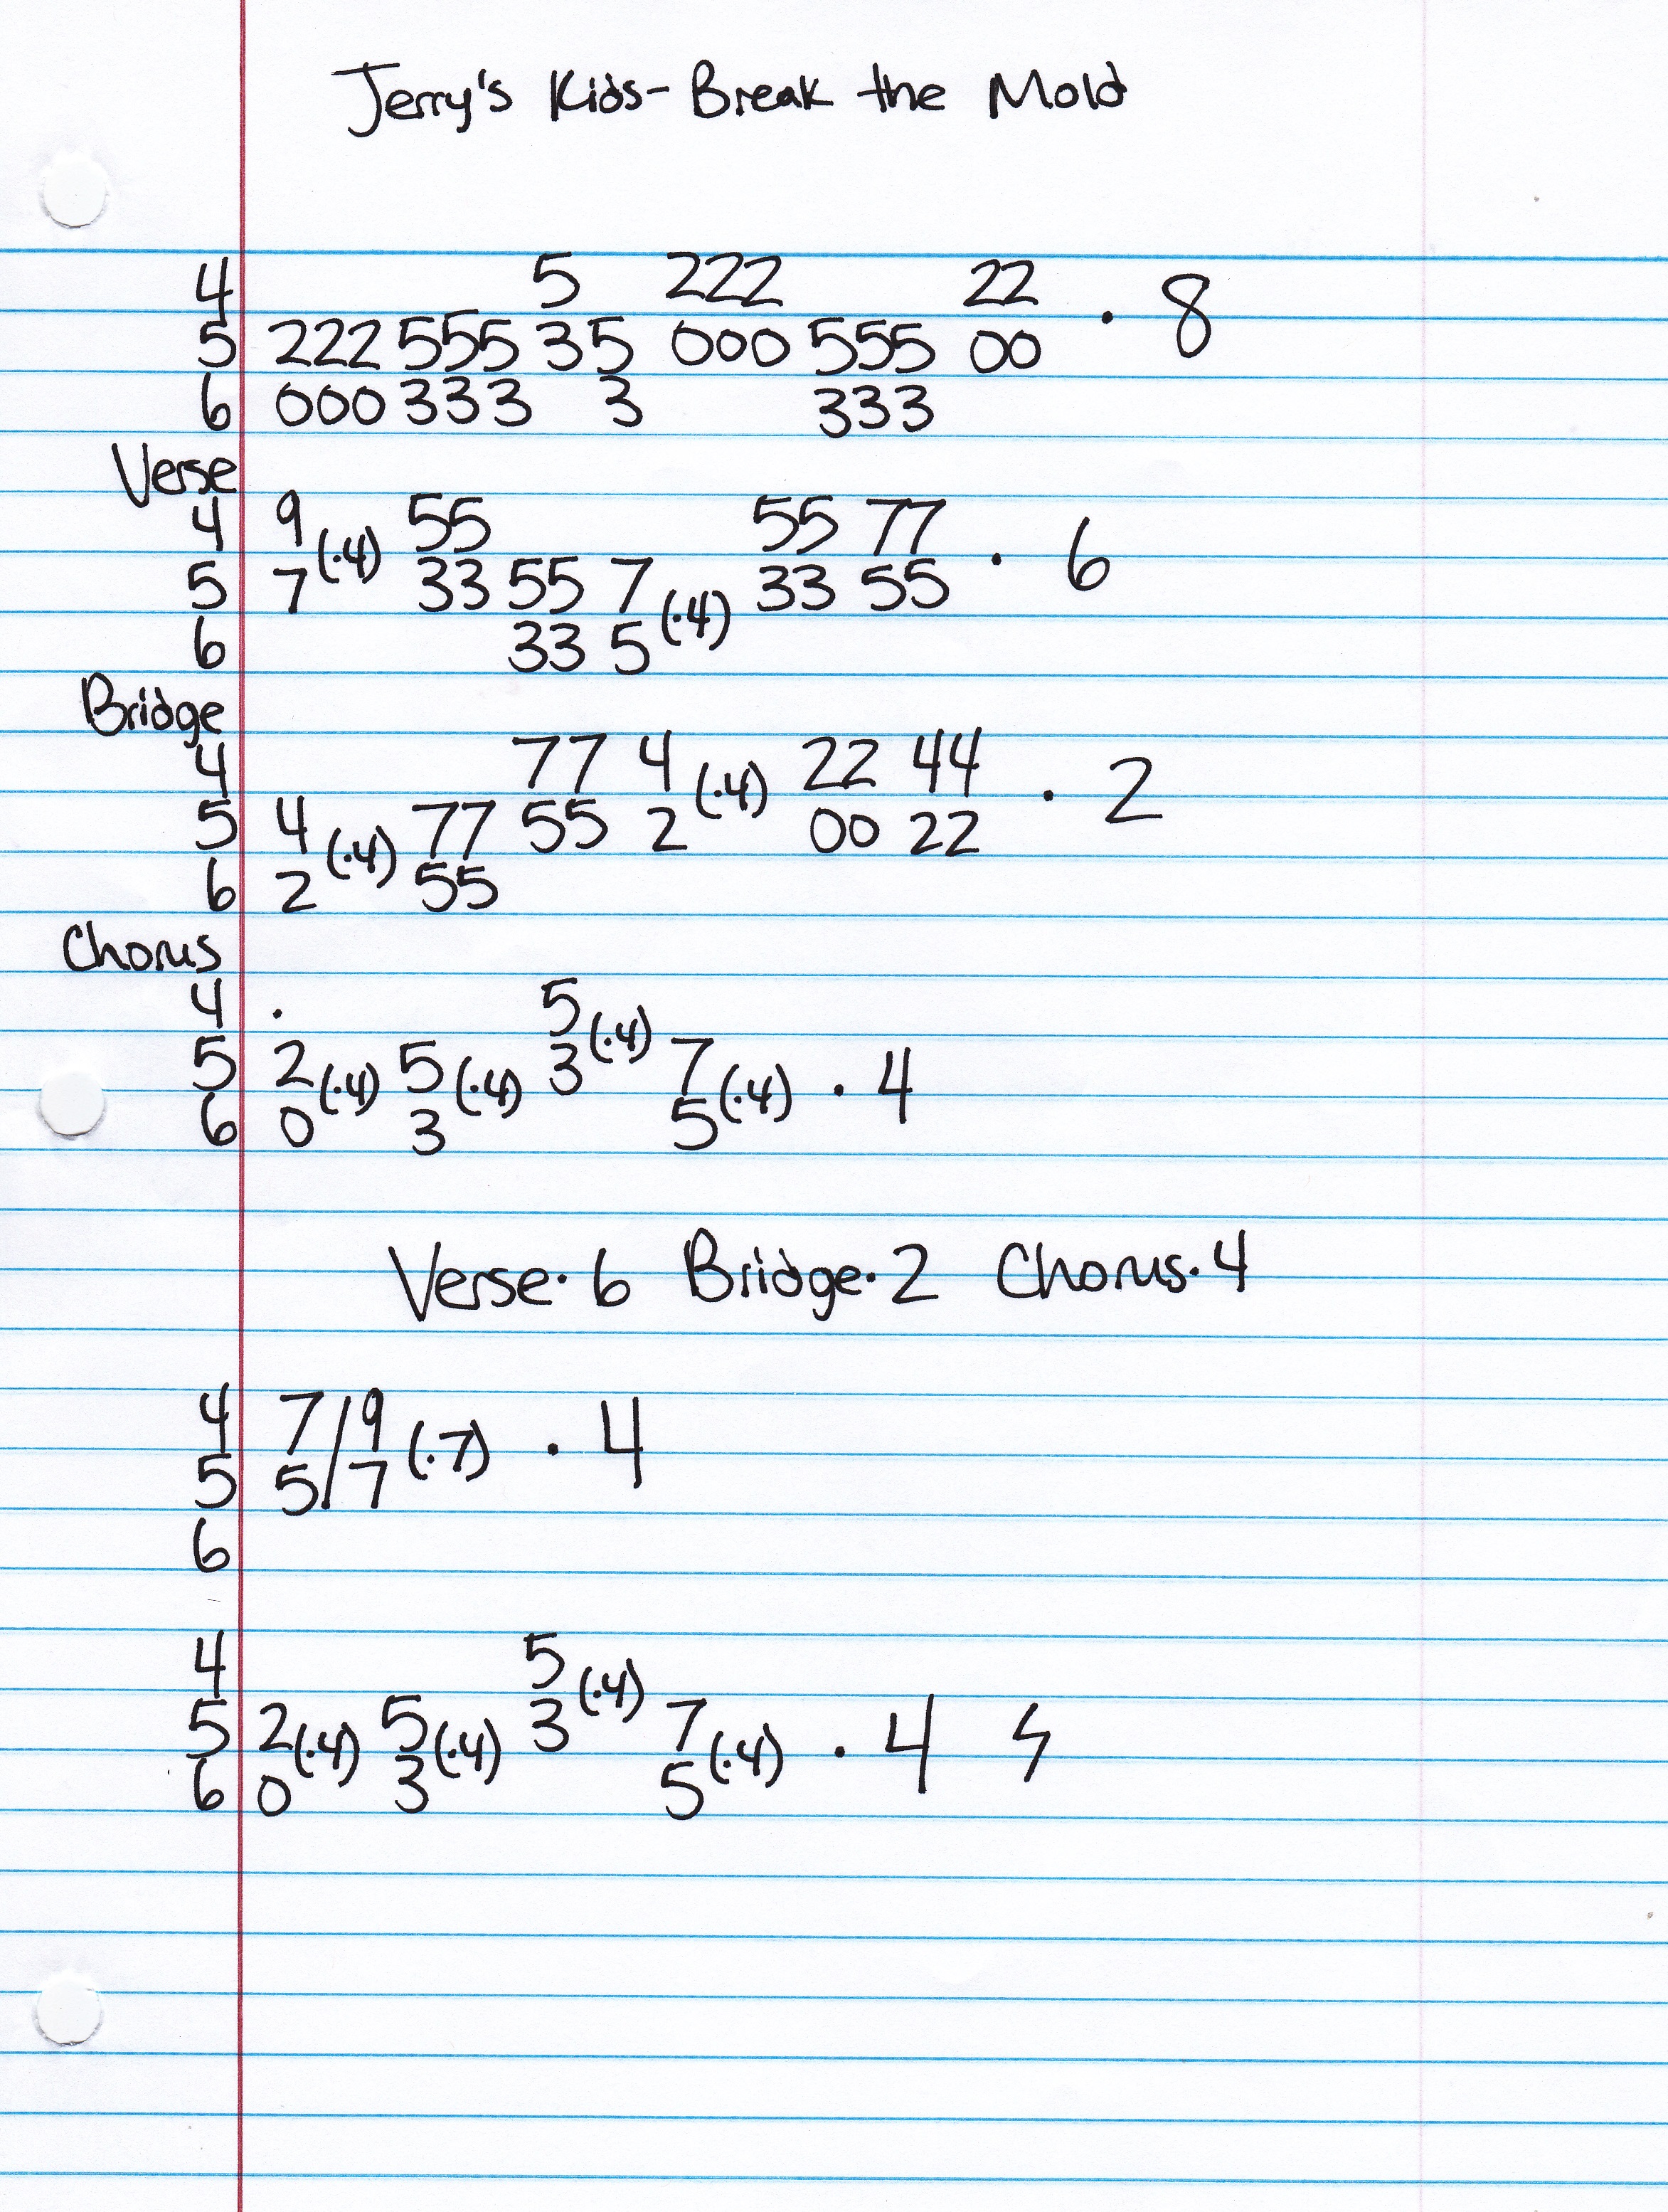 Jerry's Kids - Break the Mold
4 5 222 22
5 222 555 35 000 555 00 · 8
6 000 333 3 333
Verse
4 9 55 55 77
5 7 (·4) 33 55 7 33 55 · 6
6 33 5 (·4)
Bridge
4 77 4 (·4) 22 44
5 4 77 55 2 00 22 · 2
6 2 (·4) 55
Chorus
4 · 5 (·4)
5 2 5 3 7
6 0 (·4) 3 (·4) 5 (·4) · 4
Verse · 6 Bridge · 2 Chorus · 4
4 7/9
5 5/7 (·7) · 4
6
4 5 (·4)
5 2 (·4) 5 (·4) 3 7 (·4) · 4
6 0 3 5